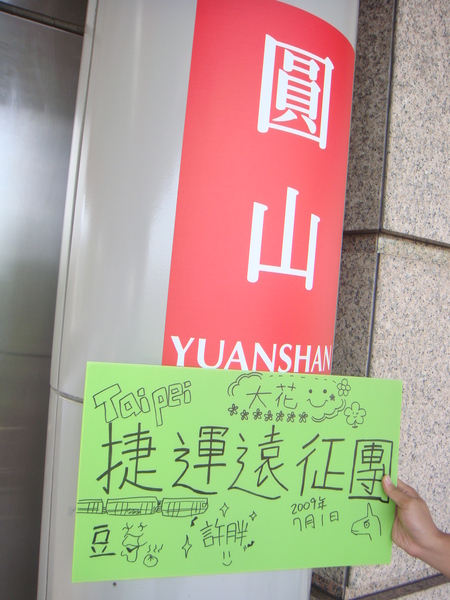 圓山
YUANSHAN
Taipei
大花
捷運遠征團
2009年
7月1日
豆
許胖